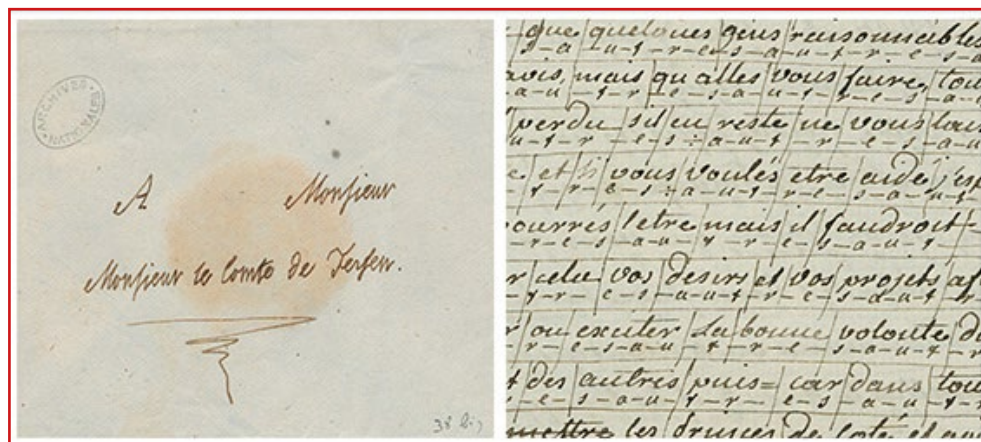 ARCHIVES NATIONALES
A Monsieur
Monsieur le Comte de Fersen.
38
que quelques gens raisonnables
s-a-u-t-r-e-s-a-u-t-r-e-s
avis, mais qu alles vous faire, tou
-a-u-t-r-e-s-a-u-t-r-e-s-a
perdu sil en reste ne vous lais
u-t-r-e-s-a-u-t-r-e-s-a-u
e et si vous voulés etre aidé j'esp
t-r-e-s-a-u-t-r-e-s-a-u-t
ourrés letre mais il faudroit
-r-e-s-a-u-t-r-e-s-a-u-t
r vos desirs et vos projets af
-t-r-e-s-a-u-t-r-e-s-a-u-t-r
r ou exciter la bonne volonte d
r-e-s-a-u-t-r-e-s-a-u-t-r
t des autres puis= car dans tou
-e-s-a-u-t-r-e-s-a-u-t-r-e
mettre les princes de coté et